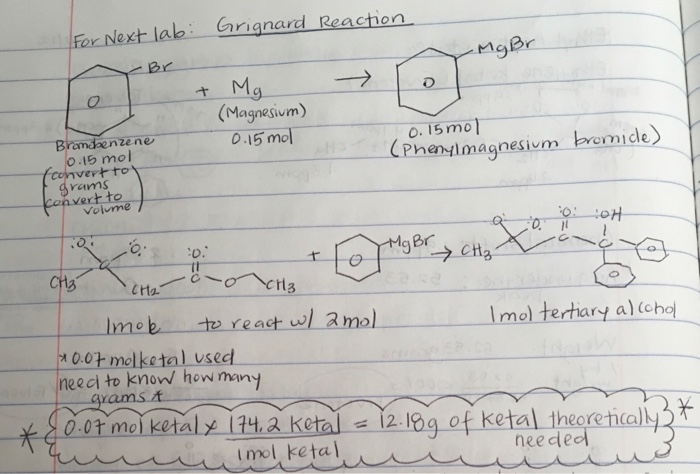 For Next lab: Grignard Reaction
Br + Mg → MgBr
(Magnesium)
Bromobenzene 0.15 mol 0.15mol
0.15 mol (Phenylmagnesium bromide)
(convert to
grams
convert to
volume)
:O: O: :O: + MgBr → O: O: :O: :OH
CH3 C CH2 C O CH3 CH3 C C
1mole to react w/ 2mol 1mol tertiary alcohol
* 0.07 mol ketal used
need to know how many
grams
* 0.07 mol ketal x 174.2 ketal / 1mol ketal = 12.18g of ketal theoretically needed *